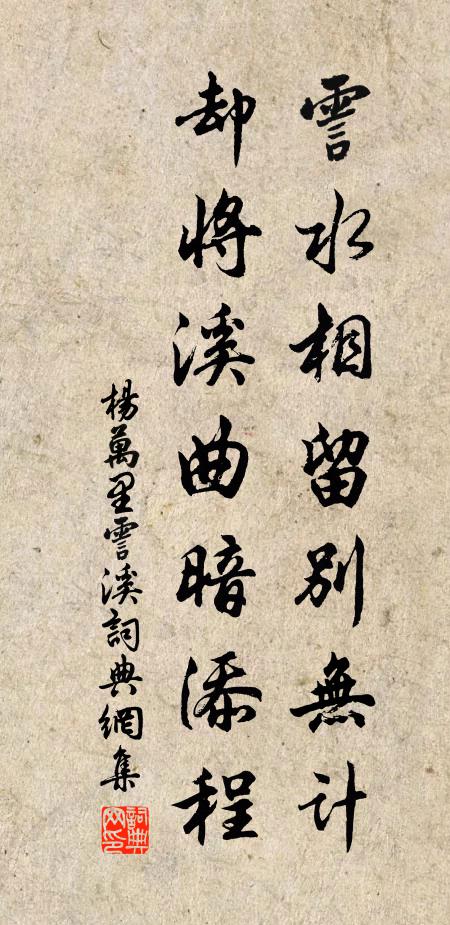 霅水相留别無計
却將溪曲暗添程
楊萬里霅溪詞典網集
詞典网印